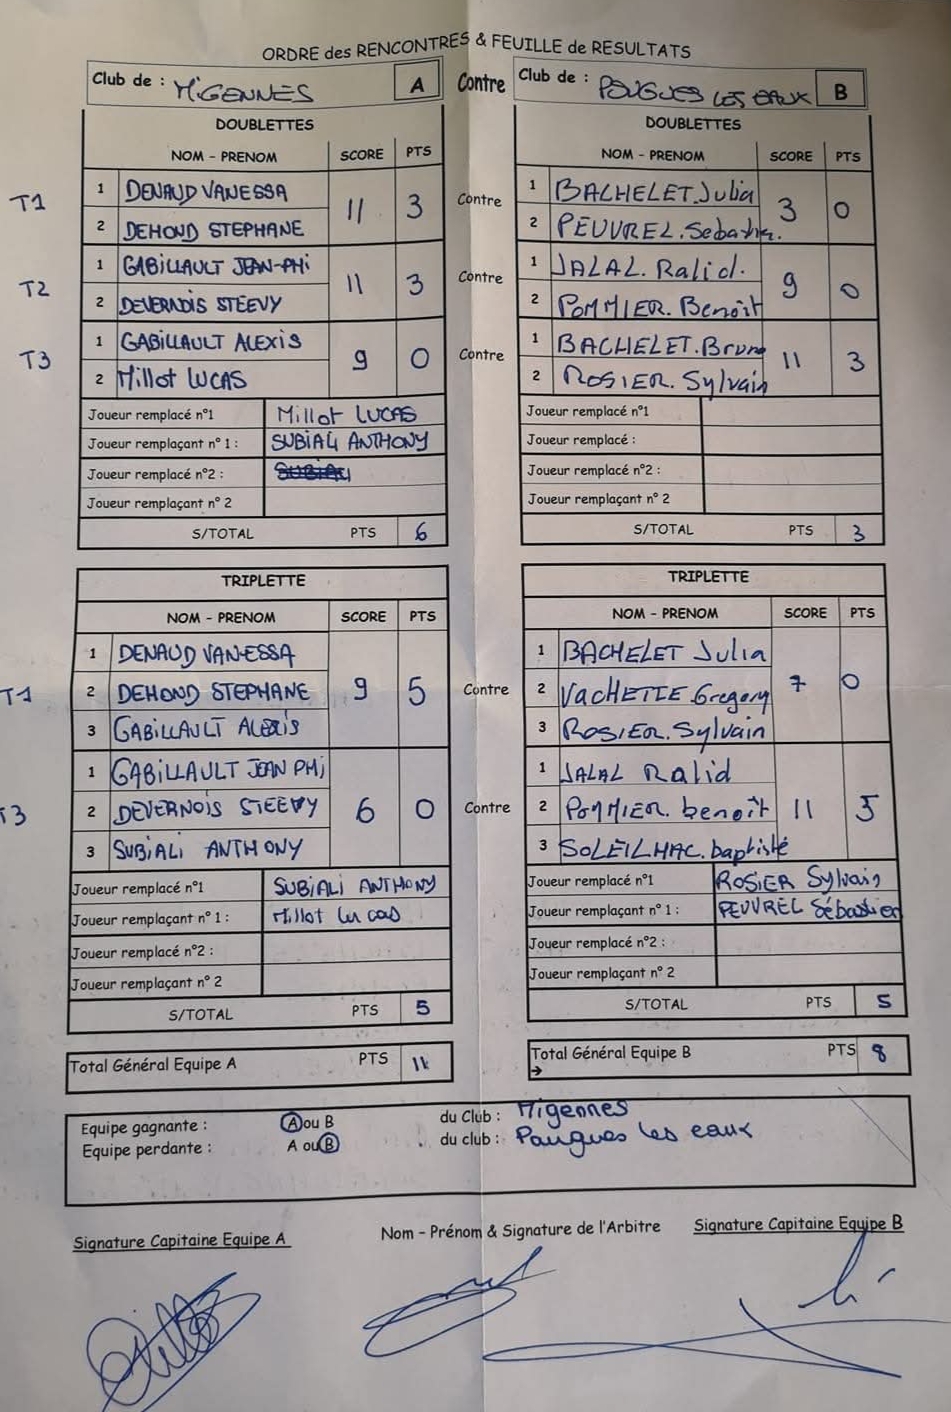 ORDRE des RENCONTRES & FEUILLE de RESULTATS
Club de : MIGENNES A Contre Club de : POUGUES LES EAUX B
DOUBLETTES DOUBLETTES
NOM - PRENOM SCORE PTS NOM - PRENOM SCORE PTS
T1 1 DENAUD VANESSA 11 3 Contre 1 BACHELET Julia 3 0
2 DEHOND STEPHANE 2 PEUVREL. Sebastien.
T2 1 GABILLAULT JEAN-PHi 11 3 Contre 1 JALAL. Ralid. 9 0
2 DEVERNOIS STEEVY 2 POMMIER. Benoît
T3 1 GABILLAULT ALEXIS 9 0 Contre 1 BACHELET. Bruno 11 3
2 Millot LUCAS 2 ROSIER. Sylvain
Joueur remplacé n°1 Millot LUCAS Joueur remplacé n°1
Joueur remplaçant n° 1 : SUBIALI ANTHONY Joueur remplacé :
Joueur remplacé n°2 : SUBIALI Joueur remplacé n°2 :
Joueur remplaçant n° 2 Joueur remplaçant n° 2
S/TOTAL PTS 6 S/TOTAL PTS 3
TRIPLETTE TRIPLETTE
NOM - PRENOM SCORE PTS NOM - PRENOM SCORE PTS
1 DENAUD VANESSA 1 BACHELET Julia
T1 2 DEHOND STEPHANE 9 5 Contre 2 VACHETTE Gregory 7 0
3 GABILLAULT ALEXIS 3 ROSIER. Sylvain
1 GABILLAULT JEAN PHi 1 JALAL Ralid
T3 2 DEVERNOIS STEEVY 6 0 Contre 2 POMMIER. benoît 11 5
3 SUBIALI ANTHONY 3 SOLEILHAC. baptiste
Joueur remplacé n°1 SUBIALI ANTHONY Joueur remplacé n°1 ROSIER Sylvain
Joueur remplaçant n° 1 : Millot lucas Joueur remplaçant n° 1 : PEUVREL Sébastien
Joueur remplacé n°2 : Joueur remplacé n°2 :
Joueur remplaçant n° 2 Joueur remplaçant n° 2
S/TOTAL PTS 5 S/TOTAL PTS 5
Total Général Equipe A PTS 11 Total Général Equipe B PTS 8
→
Equipe gagnante : A ou B du Club : Migennes
Equipe perdante : A ou B du club : Pougues les eaux
Signature Capitaine Equipe A Nom - Prénom & Signature de l'Arbitre Signature Capitaine Equipe B